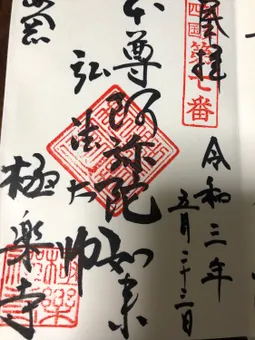 奉拝
四国第七番
令和三年
五月二十三日
本尊阿弥陀如来
弘法大師
極楽寺